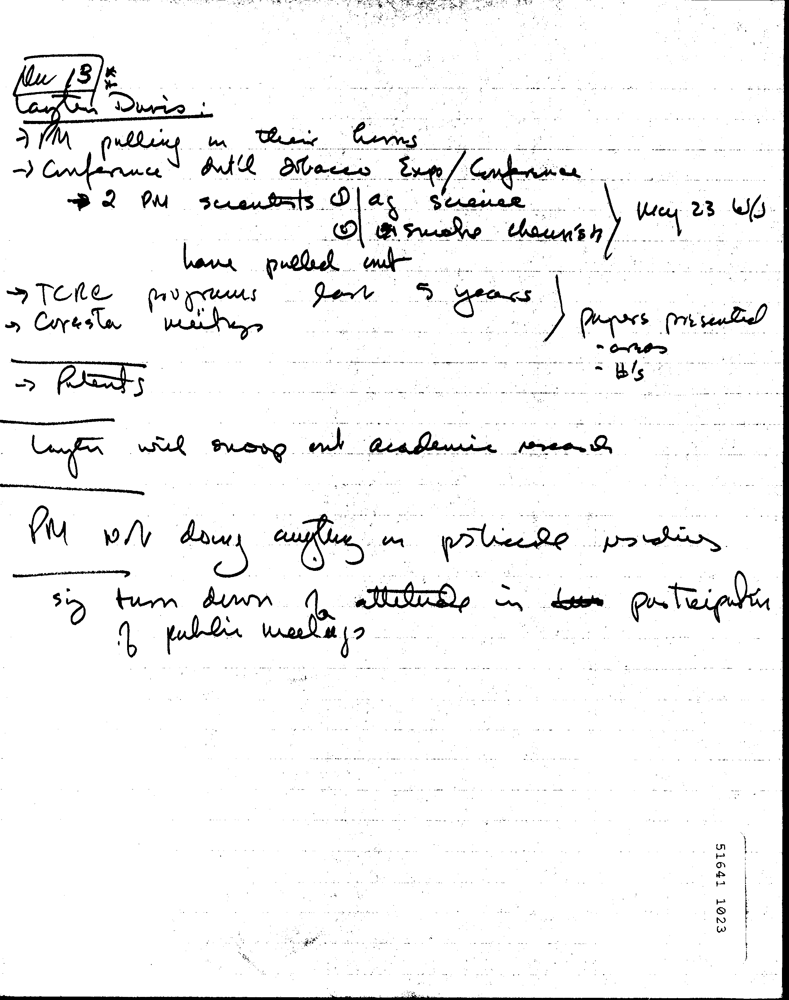 Dec 13 **
Layten Davis :
→ PM pulling in their horns
→ Conference Int'l Tobacco Expo/Conference
→ 2 PM scientists ① ag science
② smoke chemist
May 23
have pulled out
→ TCRC programs last 5 years
→ Coresta meetings
papers presented
- areas
- #'s
→ Patents
Layten will snoop out academic research
PM not doing anything on pesticide residues
sig turn down of attitude in participation
of public meetings
51641 1023